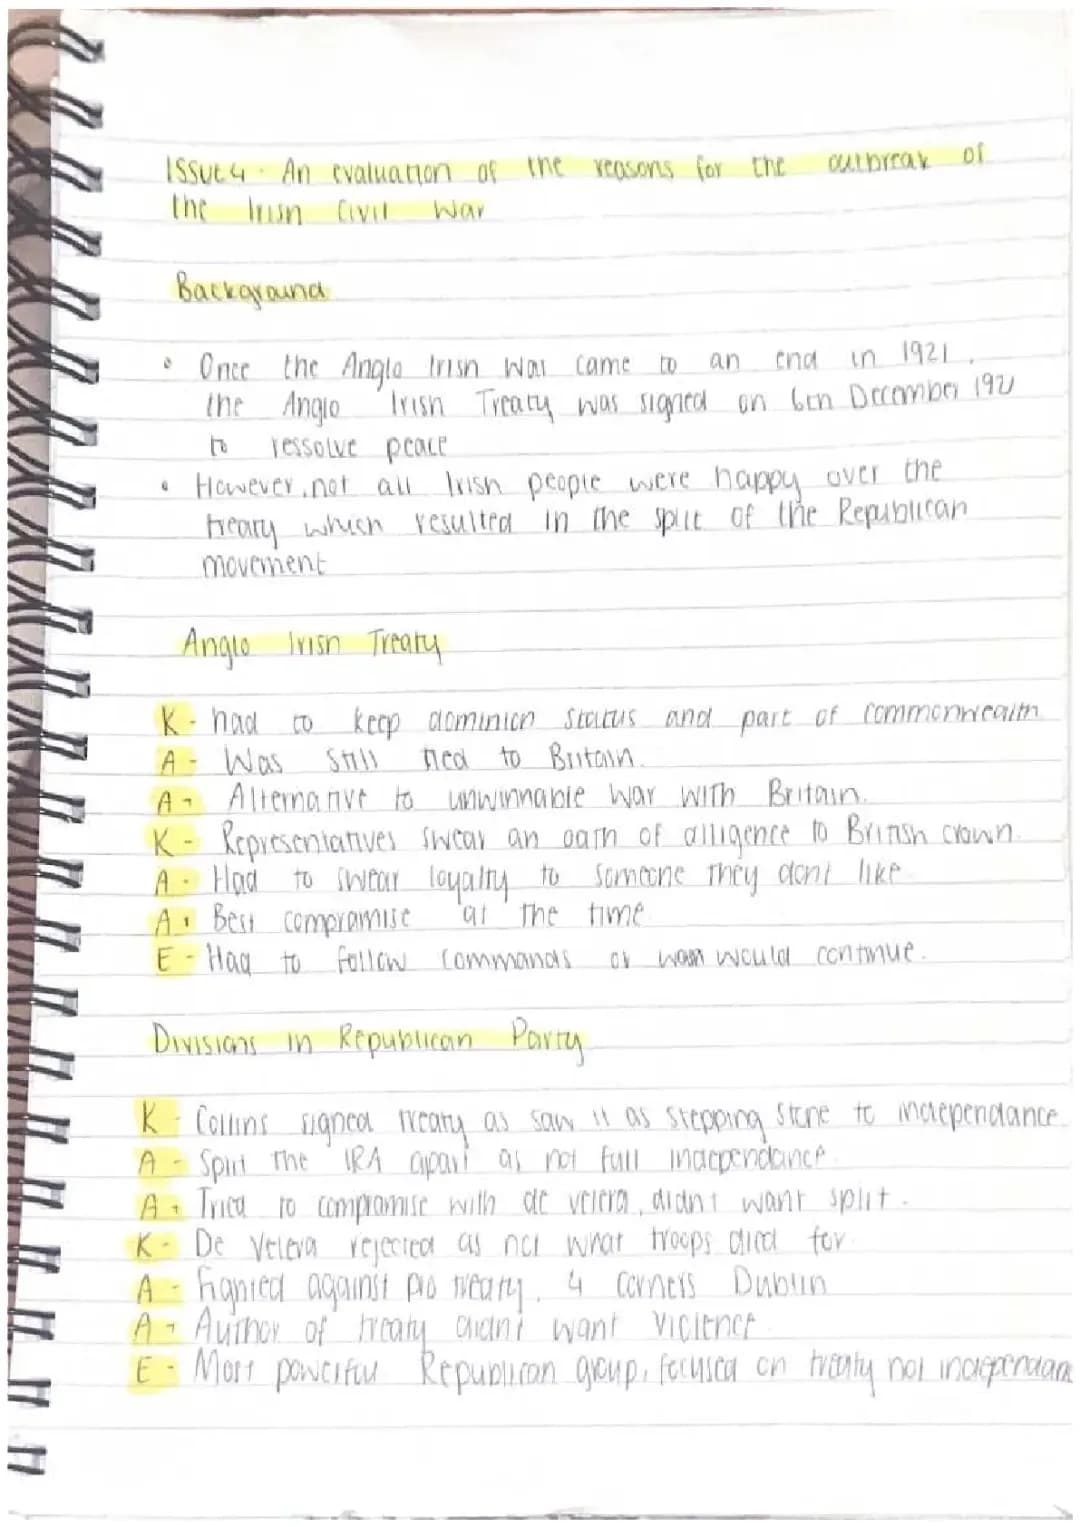 ISSUE 4 - An evaluation of the reasons for the outbreak of
the Irish Civil War
Background
• Once the Anglo Irish War came to an end in 1921,
the Anglo Irish Treaty was signed on 6th December 1921
to ressolve peace
• However, not all Irish people were happy over the
treaty which resulted in the split of the Republican
movement
Anglo Irish Treaty
K - had to keep dominion status and part of commonwealth
A - Was still tied to Britain.
A + Alternative to unwinnable war with Britain.
K - Representatives swear an oath of alligence to British crown.
A - Had to swear loyalty to someone they dont like
A + Best compromise at the time
E - Had to follow commands or would continue.
Divisions in Republican Party
K - Collins signed treaty as saw it as stepping stone to independance.
A - Split the IRA apart as not full independance
A + Tried to compromise with de velera, didnt want split.
K - De Velera rejected as not what troops died for.
A - Fighted against pro treaty, 4 corners Dublin
A + Author of treaty didnt want violence.
E - Most powerful Republican group, focused on treaty not independanc